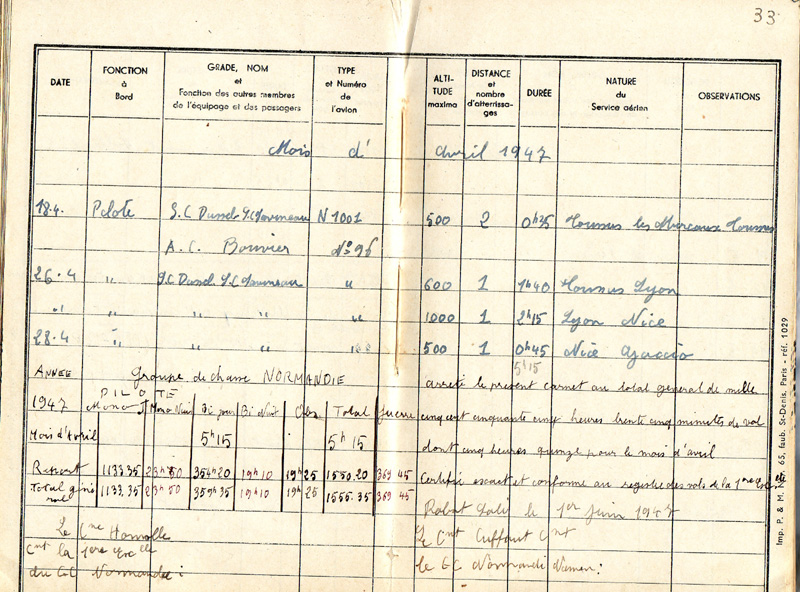 33
DATE FONCTION à Bord GRADE, NOM et Fonction des autres membres de l'équipage et des passagers TYPE et Numéro de l'avion ALTI-TUDE maxima DISTANCE et nombre d'atterrissa-ges DURÉE NATURE du Service aérien OBSERVATIONS
Mois d' avril 1947
18.4. Pilote S.C Dussel S.C N 1001 500 2 0h35 Toussus les Mureaux Toussus
A.C. Bouvier N°96
26.4 " S.C Dussel S.C " 600 1 1h40 Toussus Lyon
" " " " " 1000 1 2h15 Lyon Nice
28.4 " " " " 500 1 0h45 Nice Ajaccio
5h15
ANNEE Groupe de chasse NORMANDIE arrêté le présent carnet au total général de mille
1947 PILOTE Mono J Mono Nuit Bi jour Bi Nuit Obs Total Guerre cinq cent cinquante cinq heures trente cinq minutes de vol
Mois d'Avril 5h15 5h15 dont cinq heures quinze pour le mois d'avril
Report 1133.35 23h50 354h20 19h10 19h25 1550.20 369 45 Certifié exact et conforme au registre des vols de la 1ere Escelle
Total géné vol 1133.35 23h50 359h35 19h10 19h25 1555.35 369 45
Rabat Salé le 1er Juin 1947
Le Cne Le Cnt Cuffaut Cnt
Cnt la 1ere Escelle le GC Normandi Niemen:
du GC Normandie:
Imp. P. & M. 65, faub. St-Denis, Paris - réf. 1029